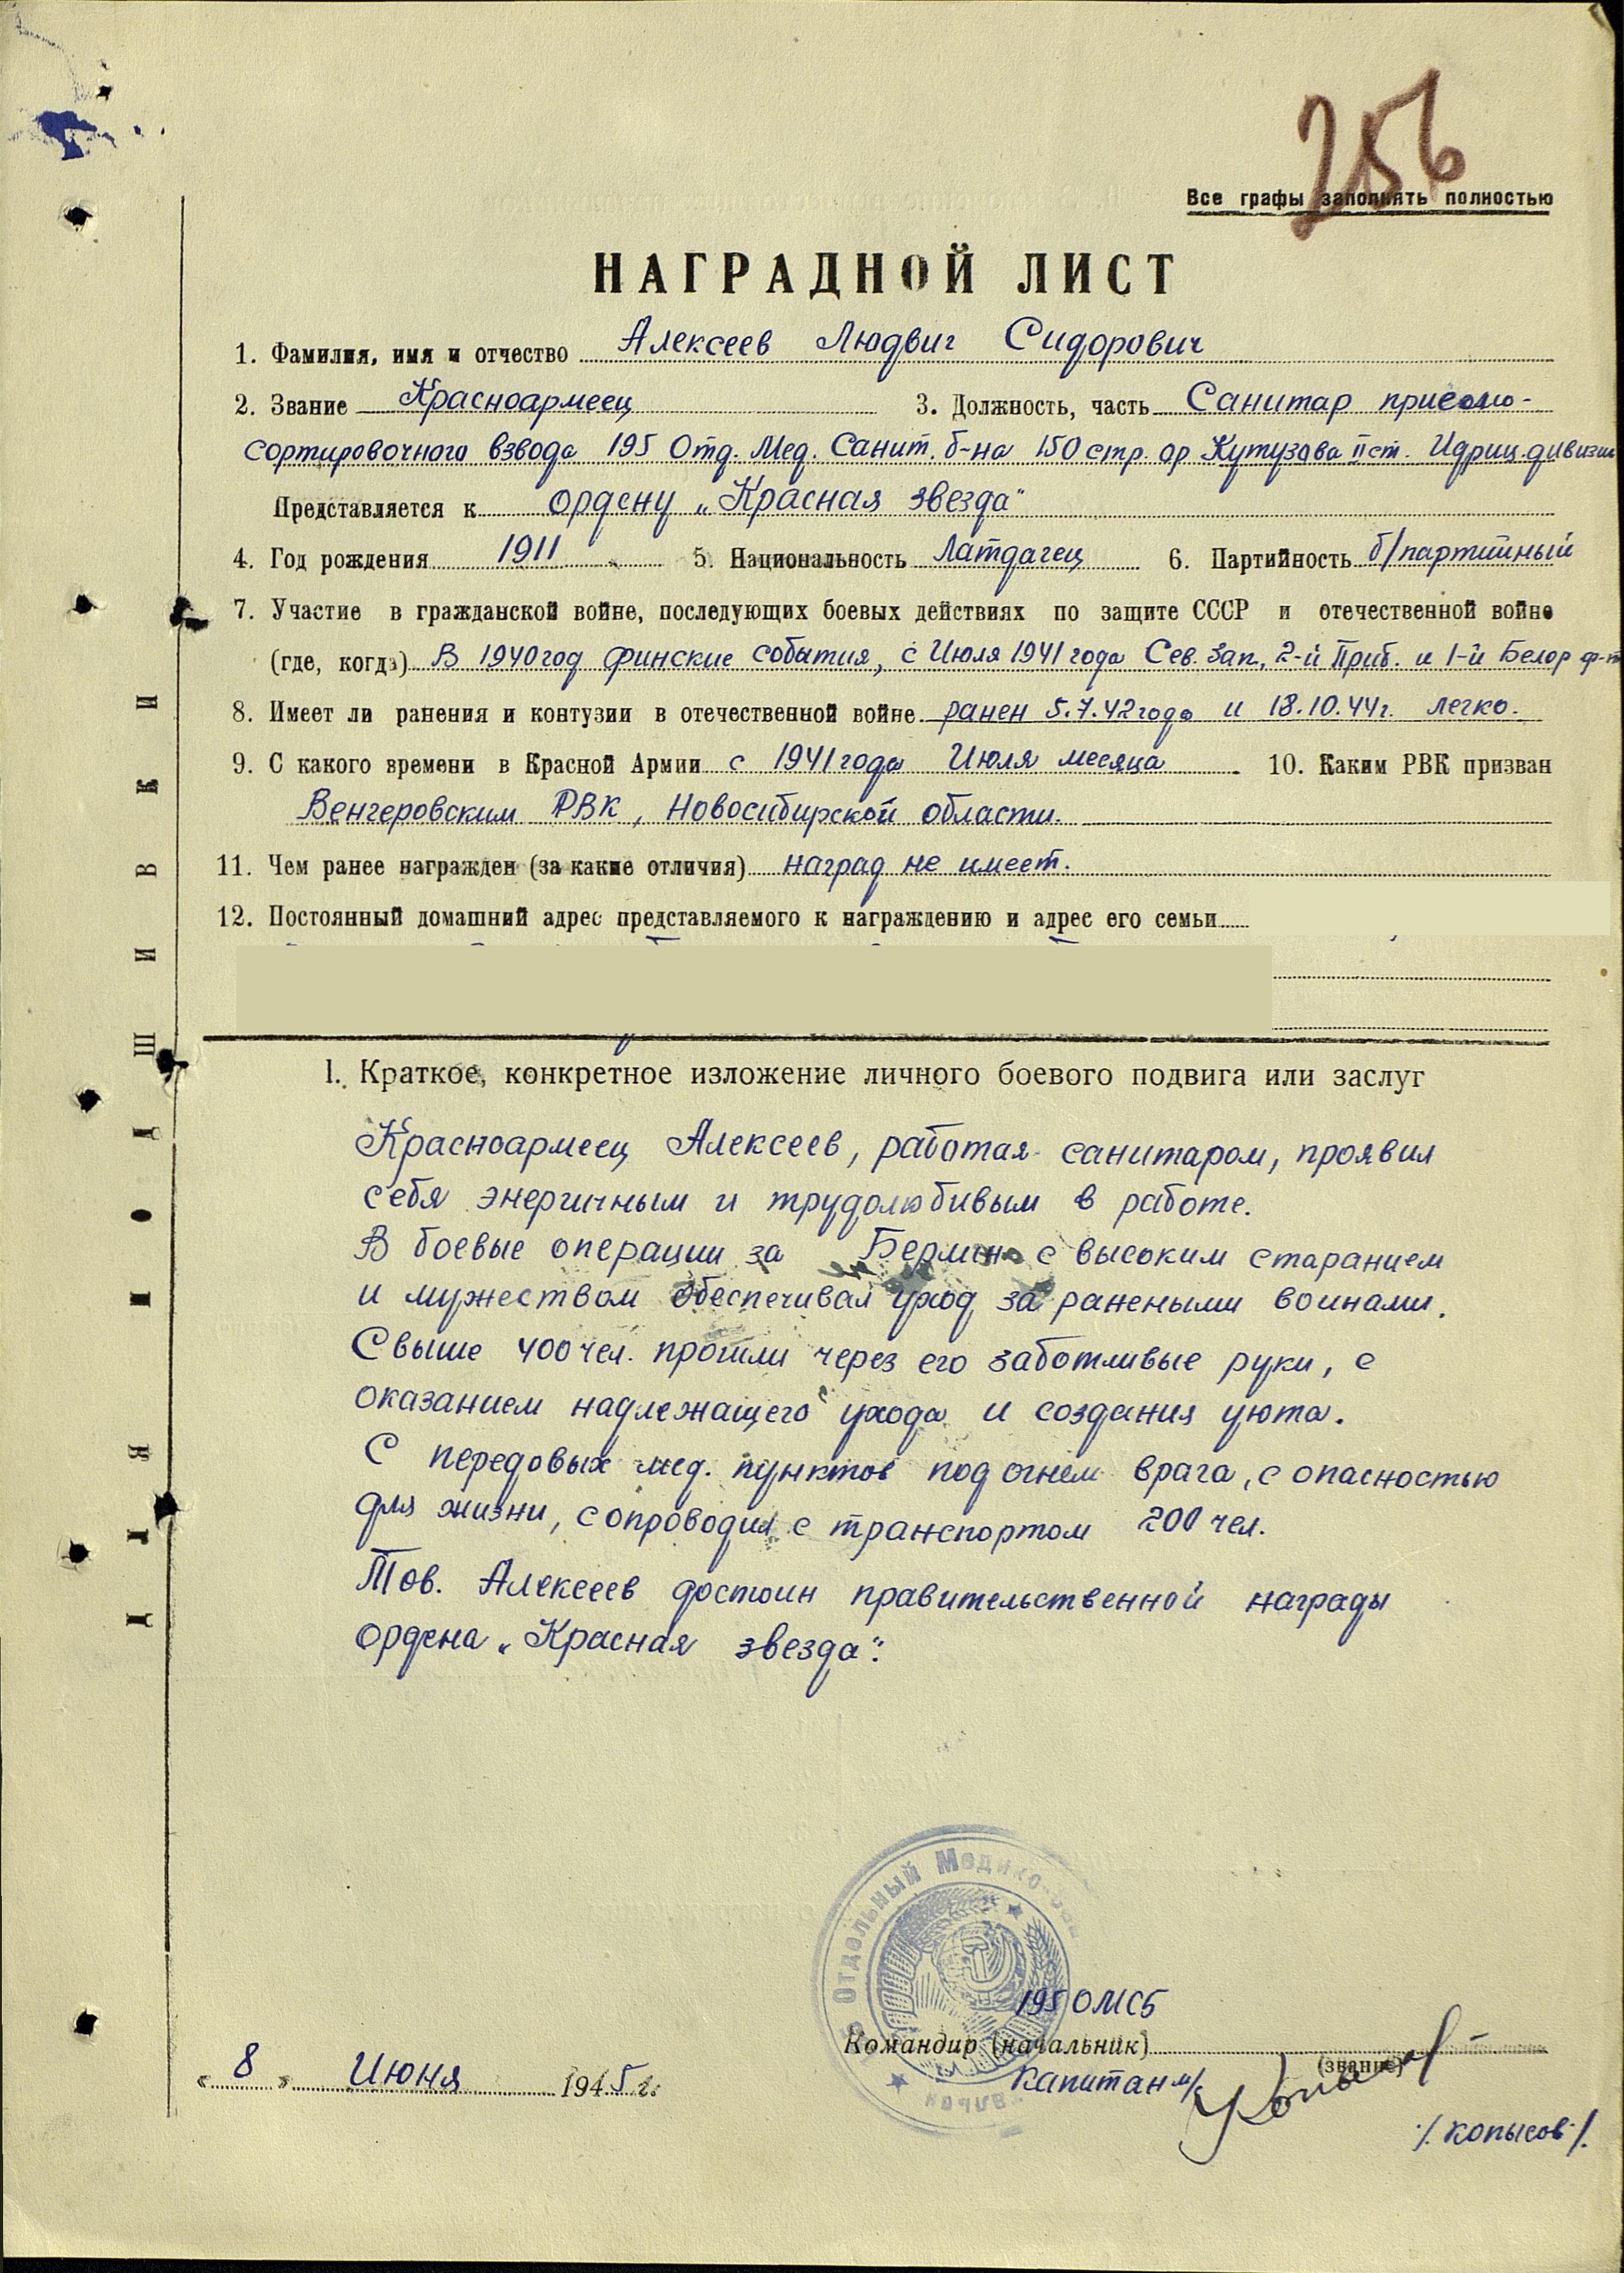 256
Все графы заполнять полностью
НАГРАДНОЙ ЛИСТ
1. Фамилия, имя и отчество Алексеев Людвиг Сидорович
2. Звание Красноармеец 3. Должность, часть Санитар приемо-
сортировочного взвода 195 Отд. Мед. Санит. б-на 150 стр. ор Кутузова II ст. Идриц. дивизии
Представляется к ордену „Красная звезда"
4. Год рождения 1911 5. Национальность Латдагец 6. Партийность б/партийный
7. Участие в гражданской войне, последующих боевых действиях по защите СССР и отечественной войне
(где, когда) В 1940 год финские события, с Июля 1941 года Сев. Зап., 2-й Приб. и 1-й Белор ф-т
8. Имеет ли ранения и контузии в отечественной войне ранен 5.7.42 года и 18.10.44 г. легко.
9. С какого времени в Красной Армии с 1941 года Июля месяца 10. Каким РВК призван
Венгеровским РВК, Новосибирской области.
11. Чем ранее награжден (за какие отличия) наград не имеет.
12. Постоянный домашний адрес представляемого к награждению и адрес его семьи
I. Краткое, конкретное изложение личного боевого подвига или заслуг
Красноармеец Алексеев, работая санитаром, проявил
себя энергичным и трудолюбивым в работе.
В боевые операции за Берлин с высоким старанием
и мужеством обеспечивал уход за ранеными воинами.
Свыше 400 чел. прошли через его заботливые руки, с
оказанием надлежащего ухода и создания уюта.
С передовых мед. пунктов под огнем врага, с опасностью
для жизни, сопроводил с транспортом 200 чел.
Тов. Алексеев достоин правительственной награды
ордена „Красная звезда".
Отдельный Медико-
195 ОМСБ
Командир (начальник)
(звание)
капитан м/с
/. Копысов /.
« 8 » Июня 1945 г.
ДЛЯ ПОДШИВКИ